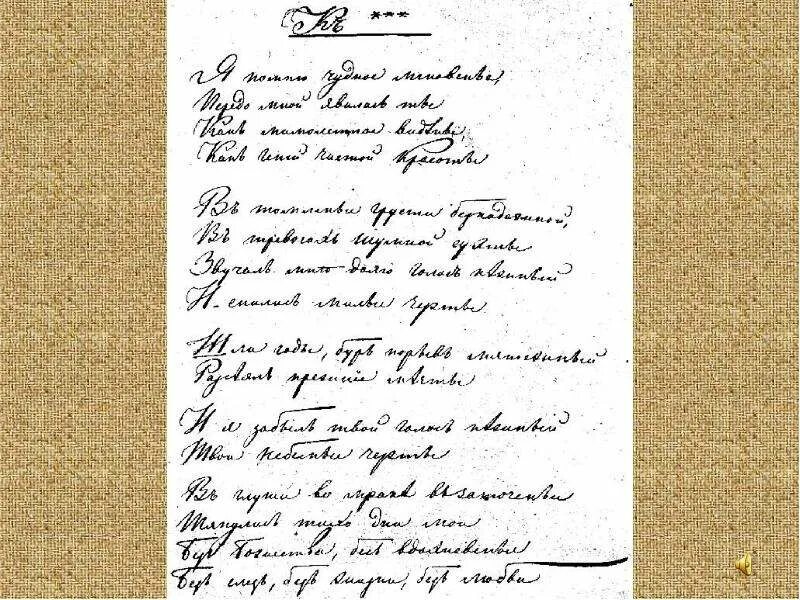 Къ ***
Я помню чудное мгновенье,
Передо мной явилась ты
Какъ мимолетное видѣнье,
Какъ геній чистой красоты
Въ томленьи грусти безнадежной,
Въ тревогахъ шумной суеты
Звучалъ мнѣ долго голосъ нѣжный
И снились милые черты
Шли годы, бурь порывъ мятежный
Разсѣялъ прежніе мечты
И я забылъ твой голосъ нѣжный
Твои небесные черты
Въ глуши во мракѣ заточенья
Тянулись тихо дни мои
Безъ Божества, безъ вдохновенья
Безъ слезъ, безъ жизни, безъ любви